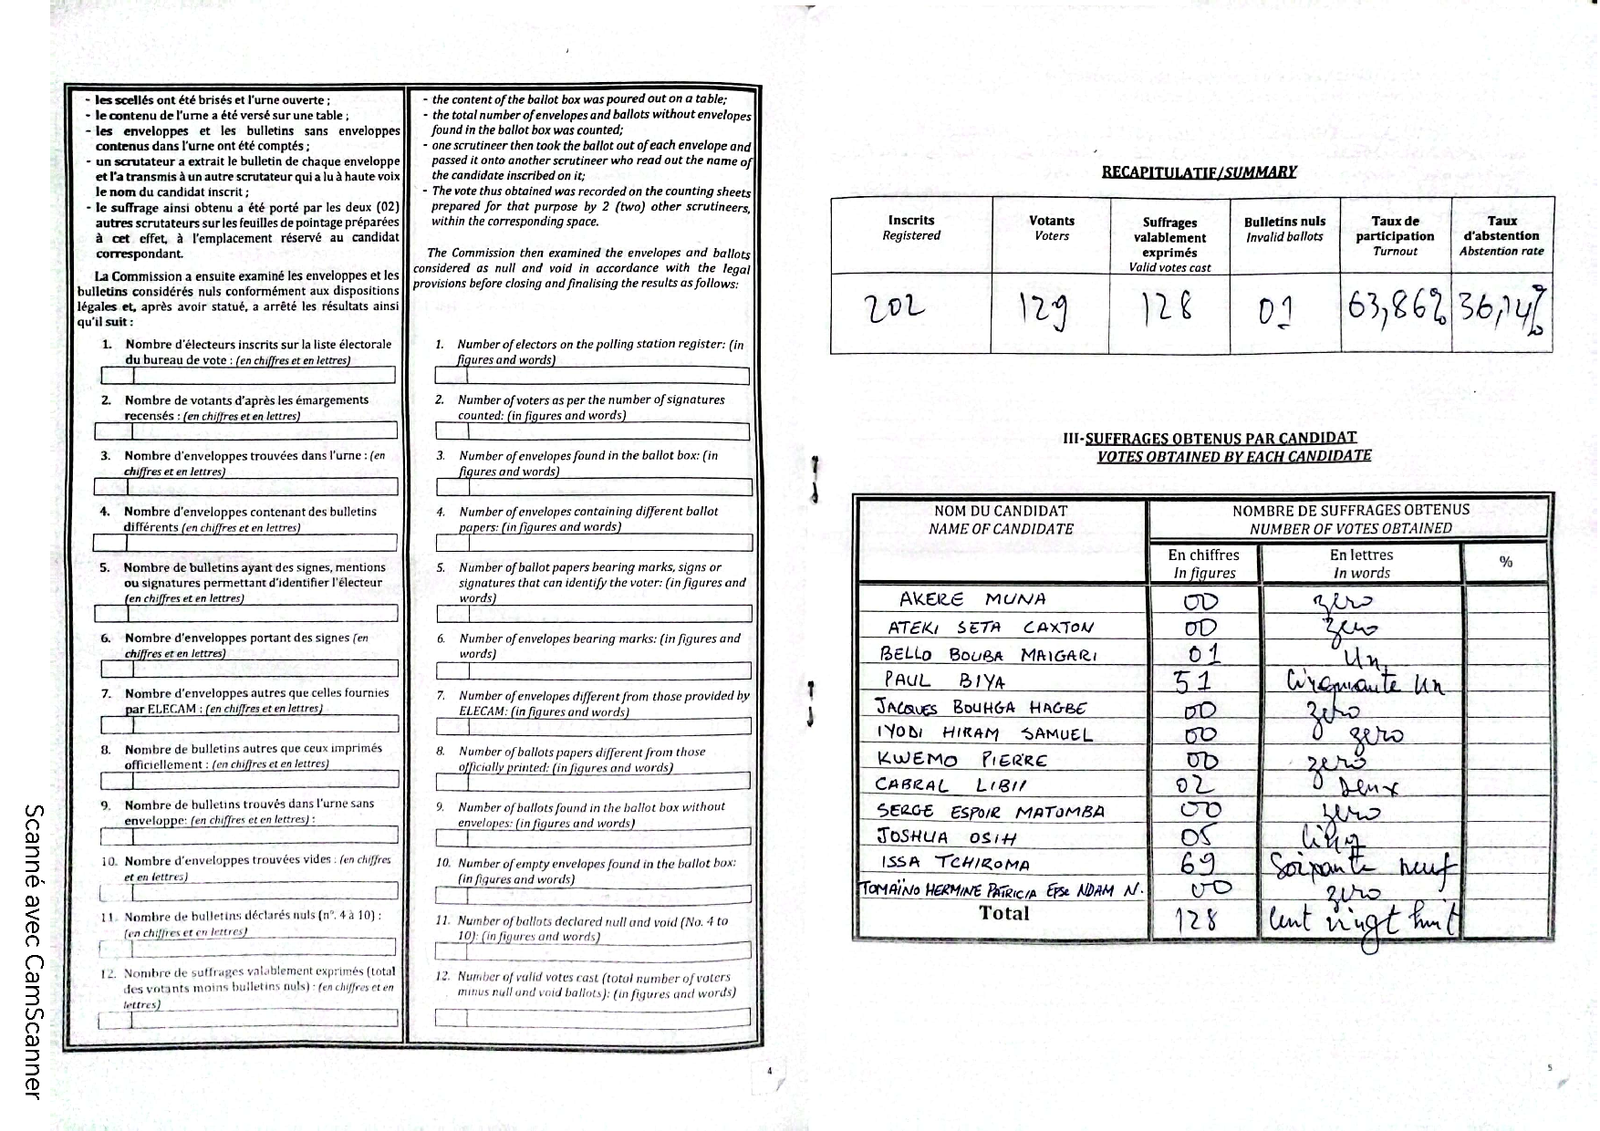 - les scellés ont été brisés et l'urne ouverte ;
- le contenu de l'urne a été versé sur une table ;
- les enveloppes et les bulletins sans enveloppes
contenus dans l'urne ont été comptés ;
- un scrutateur a extrait le bulletin de chaque enveloppe
et l'a transmis à un autre scrutateur qui a lu à haute voix
le nom du candidat inscrit ;
- le suffrage ainsi obtenu a été porté par les deux (02)
autres scrutateurs sur les feuilles de pointage préparées
à cet effet, à l'emplacement réservé au candidat
correspondant.
La Commission a ensuite examiné les enveloppes et les
bulletins considérés nuls conformément aux dispositions
légales et, après avoir statué, a arrêté les résultats ainsi
qu'il suit :
1. Nombre d'électeurs inscrits sur la liste électorale
du bureau de vote : (en chiffres et en lettres)
2. Nombre de votants d'après les émargements
recensés : (en chiffres et en lettres)
3. Nombre d'enveloppes trouvées dans l'urne : (en
chiffres et en lettres)
4. Nombre d'enveloppes contenant des bulletins
différents (en chiffres et en lettres)
5. Nombre de bulletins ayant des signes, mentions
ou signatures permettant d'identifier l'électeur
(en chiffres et en lettres)
6. Nombre d'enveloppes portant des signes (en
chiffres et en lettres)
7. Nombre d'enveloppes autres que celles fournies
par ELECAM : (en chiffres et en lettres)
8. Nombre de bulletins autres que ceux imprimés
officiellement : (en chiffres et en lettres)
9. Nombre de bulletins trouvés dans l'urne sans
enveloppe: (en chiffres et en lettres) :
10. Nombre d'enveloppes trouvées vides : (en chiffres
et en lettres)
11. Nombre de bulletins déclarés nuls (n°. 4 à 10) :
(en chiffres et en lettres)
12. Nombre de suffrages valablement exprimés (total
des votants moins bulletins nuls) : (en chiffres et en
lettres)
- the content of the ballot box was poured out on a table;
- the total number of envelopes and ballots without envelopes
found in the ballot box was counted;
- one scrutineer then took the ballot out of each envelope and
passed it onto another scrutineer who read out the name of
the candidate inscribed on it;
- The vote thus obtained was recorded on the counting sheets
prepared for that purpose by 2 (two) other scrutineers,
within the corresponding space.
The Commission then examined the envelopes and ballots
considered as null and void in accordance with the legal
provisions before closing and finalising the results as follows:
1. Number of electors on the polling station register: (in
figures and words)
2. Number of voters as per the number of signatures
counted: (in figures and words)
3. Number of envelopes found in the ballot box: (in
figures and words)
4. Number of envelopes containing different ballot
papers: (in figures and words)
5. Number of ballot papers bearing marks, signs or
signatures that can identify the voter: (in figures and
words)
6. Number of envelopes bearing marks: (in figures and
words)
7. Number of envelopes different from those provided by
ELECAM: (in figures and words)
8. Number of ballots papers different from those
officially printed: (in figures and words)
9. Number of ballots found in the ballot box without
envelopes: (in figures and words)
10. Number of empty envelopes found in the ballot box:
(in figures and words)
11. Number of ballots declared null and void (No. 4 to
10): (in figures and words)
12. Number of valid votes cast (total number of voters
minus null and void ballots): (in figures and words)
4
RECAPITULATIF/SUMMARY
Inscrits Votants Suffrages Bulletins nuls Taux de Taux
Registered Voters valablement Invalid ballots participation d'abstention
exprimés Turnout Abstention rate
Valid votes cast
202 129 128 01 63,86% 36,14%
III-SUFFRAGES OBTENUS PAR CANDIDAT
VOTES OBTAINED BY EACH CANDIDATE
NOM DU CANDIDAT NOMBRE DE SUFFRAGES OBTENUS
NAME OF CANDIDATE NUMBER OF VOTES OBTAINED
En chiffres En lettres %
In figures In words
AKERE MUNA 00 zero
ATEKI SETA CAXTON 00 zero
BELLO BOUBA MAIGARI 01 Un
PAUL BIYA 51 Cinquante Un
JACQUES BOUHGA HAGBE 00 zero
IYODI HIRAM SAMUEL 00 zero
KWEMO PIERRE 00 zero
CABRAL LIBII 02 Deux
SERGE ESPOIR MATOMBA 00 zero
JOSHUA OSIH 05 Cinq
ISSA TCHIROMA 69 Soixante neuf
TOMAÏNO HERMINE PATRICIA Epse NDAM N. 00 zero
Total 128 Cent vingt huit
5
Scanné avec CamScanner